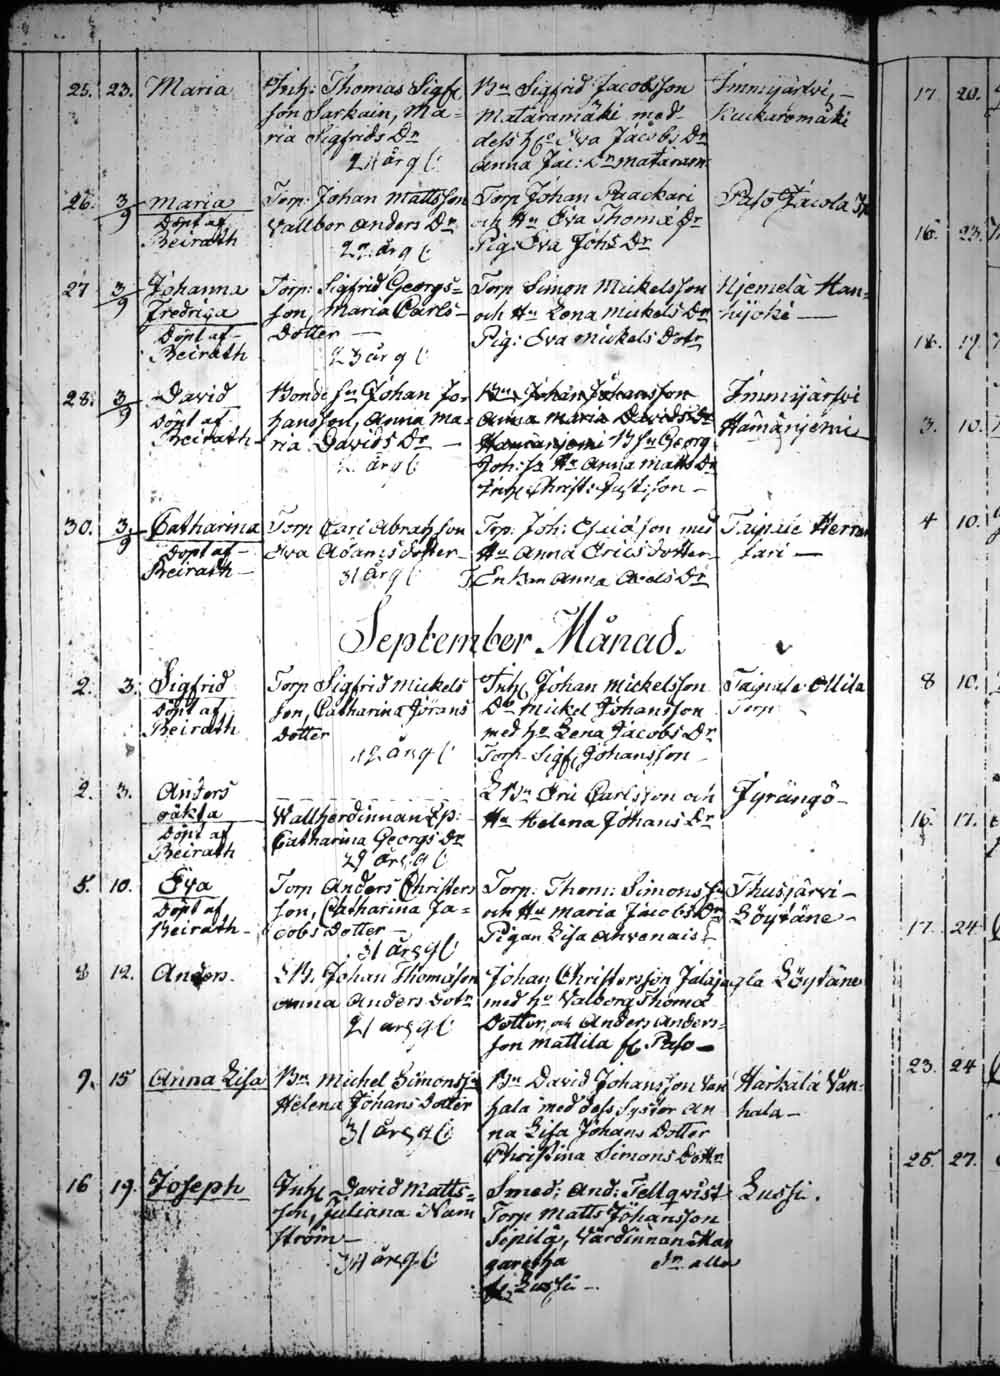 25. 23. Maria
Inh: Thomas Sigf:
son Sarkain, Ma=
ria Sigfrids Dr
21 år g l:
Bn Sigfrid Jacobsson
Mataramäki med
dess ho Eva Jacobs Dr
Anna Jac: Dr mataram:
Immijärfvi, -
Kuckaromäki
26. 3/9 Maria
Döpt af
Beirath
Torp: Johan Mattsson
Vallbor Anders Dr
år g l:
Torp Johan Paackari
och Hu Eva Thomæ Dr
Pig: Eva Johs Dr
Jacola
27 3/9 Johanna
Fredrica
Döpt af
Beirath
Torp: Sigfrid Georgs=
son, Maria Carls-
Dotter
23 år g l:
Torp Simon Mickelsson
och Hu Lena Mickels Dr
Pig: Eva Mickels Dotr
Njemelä Han=
hijoki
28. 3/9 David
Döpt af
Beirath
Bonde Sn Johan Jo-
hansson, Anna Ma=
ria Davids Dr -
år g l:
Bn Johan Johansson
Anna Maria Davids Dr
Georg
Joh: Hu Anna Matts Dr
Inh Christ: Gust: son -
Immijärfvi
Hämänjemi
30. 3/9 Catharina
Döpt af -
Beirath -
Torp Carl Abrahsson
Eva Adams dotter -
31 år g l:
Trp: Joh: son med
Hu Anna Erics dotter
Enkan Anna Axels Dr
Taipale
September Månad.
2. 3. Sigfrid
Döpt af
Beirath
Torp Sigfrid Mickels
son, Catharina Jörans
dotter
år g l:
Inh Johan Mickelsson
Do Mickel Johansson
med ho Lena Jacobs Dr
Torp Sigf: Johansson -
Taipale Ollila
Torp:
2. 3. Anders
oäkta
Döpt af
Beirath
Wallherdinnan
Catharina Georgs Dr
29 års g l:
Eric Carlsson och
Hu Helena Johans Dr
Jyrängö-
5. 10. Eva
Döpt af
Beirath -
Torp Anders Christers
son, Catharina Ja=
cobs Dotter -
31 års g l:
Torp: Thom: Simonss
och Hu Maria Jacobs Dr
Pigan Lisa Ahvenais:
Thusjärvi -
Löytäne -
8 12. Anders.
Johan Thomasson
Anna Anders Dotr
21 års g l:
Johan Christersson Jalajagla
med ho Valborg Thomæ
Dotter, och Anders Anders=
son Mattila
Löytäne
9. 15 Anna Lisa
Bn Michel Simonss
Helena Johans Dotter
31 års g l:
Bn David Johansson Van
hala med dess Syster An
na Lisa Johans Dotter
Christina Simons Dottr
Härkälä Van=
hala -
16 19. Joseph
Inh David Matts=
son, Juliana Nam
ström -
34 års g l:
Smed: And: Tellqvist
Torp Matts Johansson
Sipilä, Värdinnan Mar
garetha alla
Lussi -
Lussi.
17. 20.
16. 23.
18. 19.
3. 10.
4 10.
8 10.
16. 17.
17. 24
23. 24
25. 27.